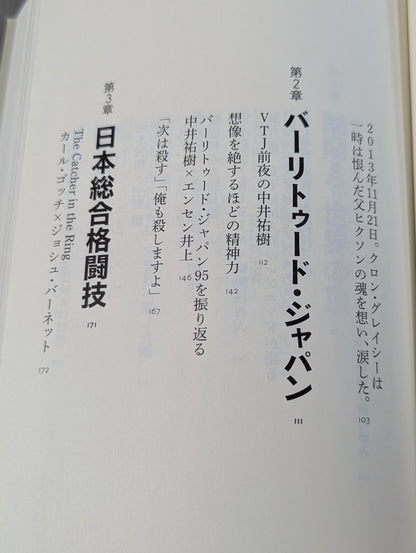 2013年11月21日。クロン・グレイシーは
一時は恨んだ父ヒクソンの魂を想い、涙した。 103
第2章
バーリトゥード・ジャパン 111
VTJ前夜の中井祐樹 112
想像を絶するほどの精神力 142
バーリトゥード・ジャパン95を振り返る
中井祐樹×エンセン井上 146
「次は殺す」「俺も殺しますよ」 167
第3章
日本総合格闘技 171
The Catcher in the Ring
カール・ゴッチ×ジョシュ・バーネット 172